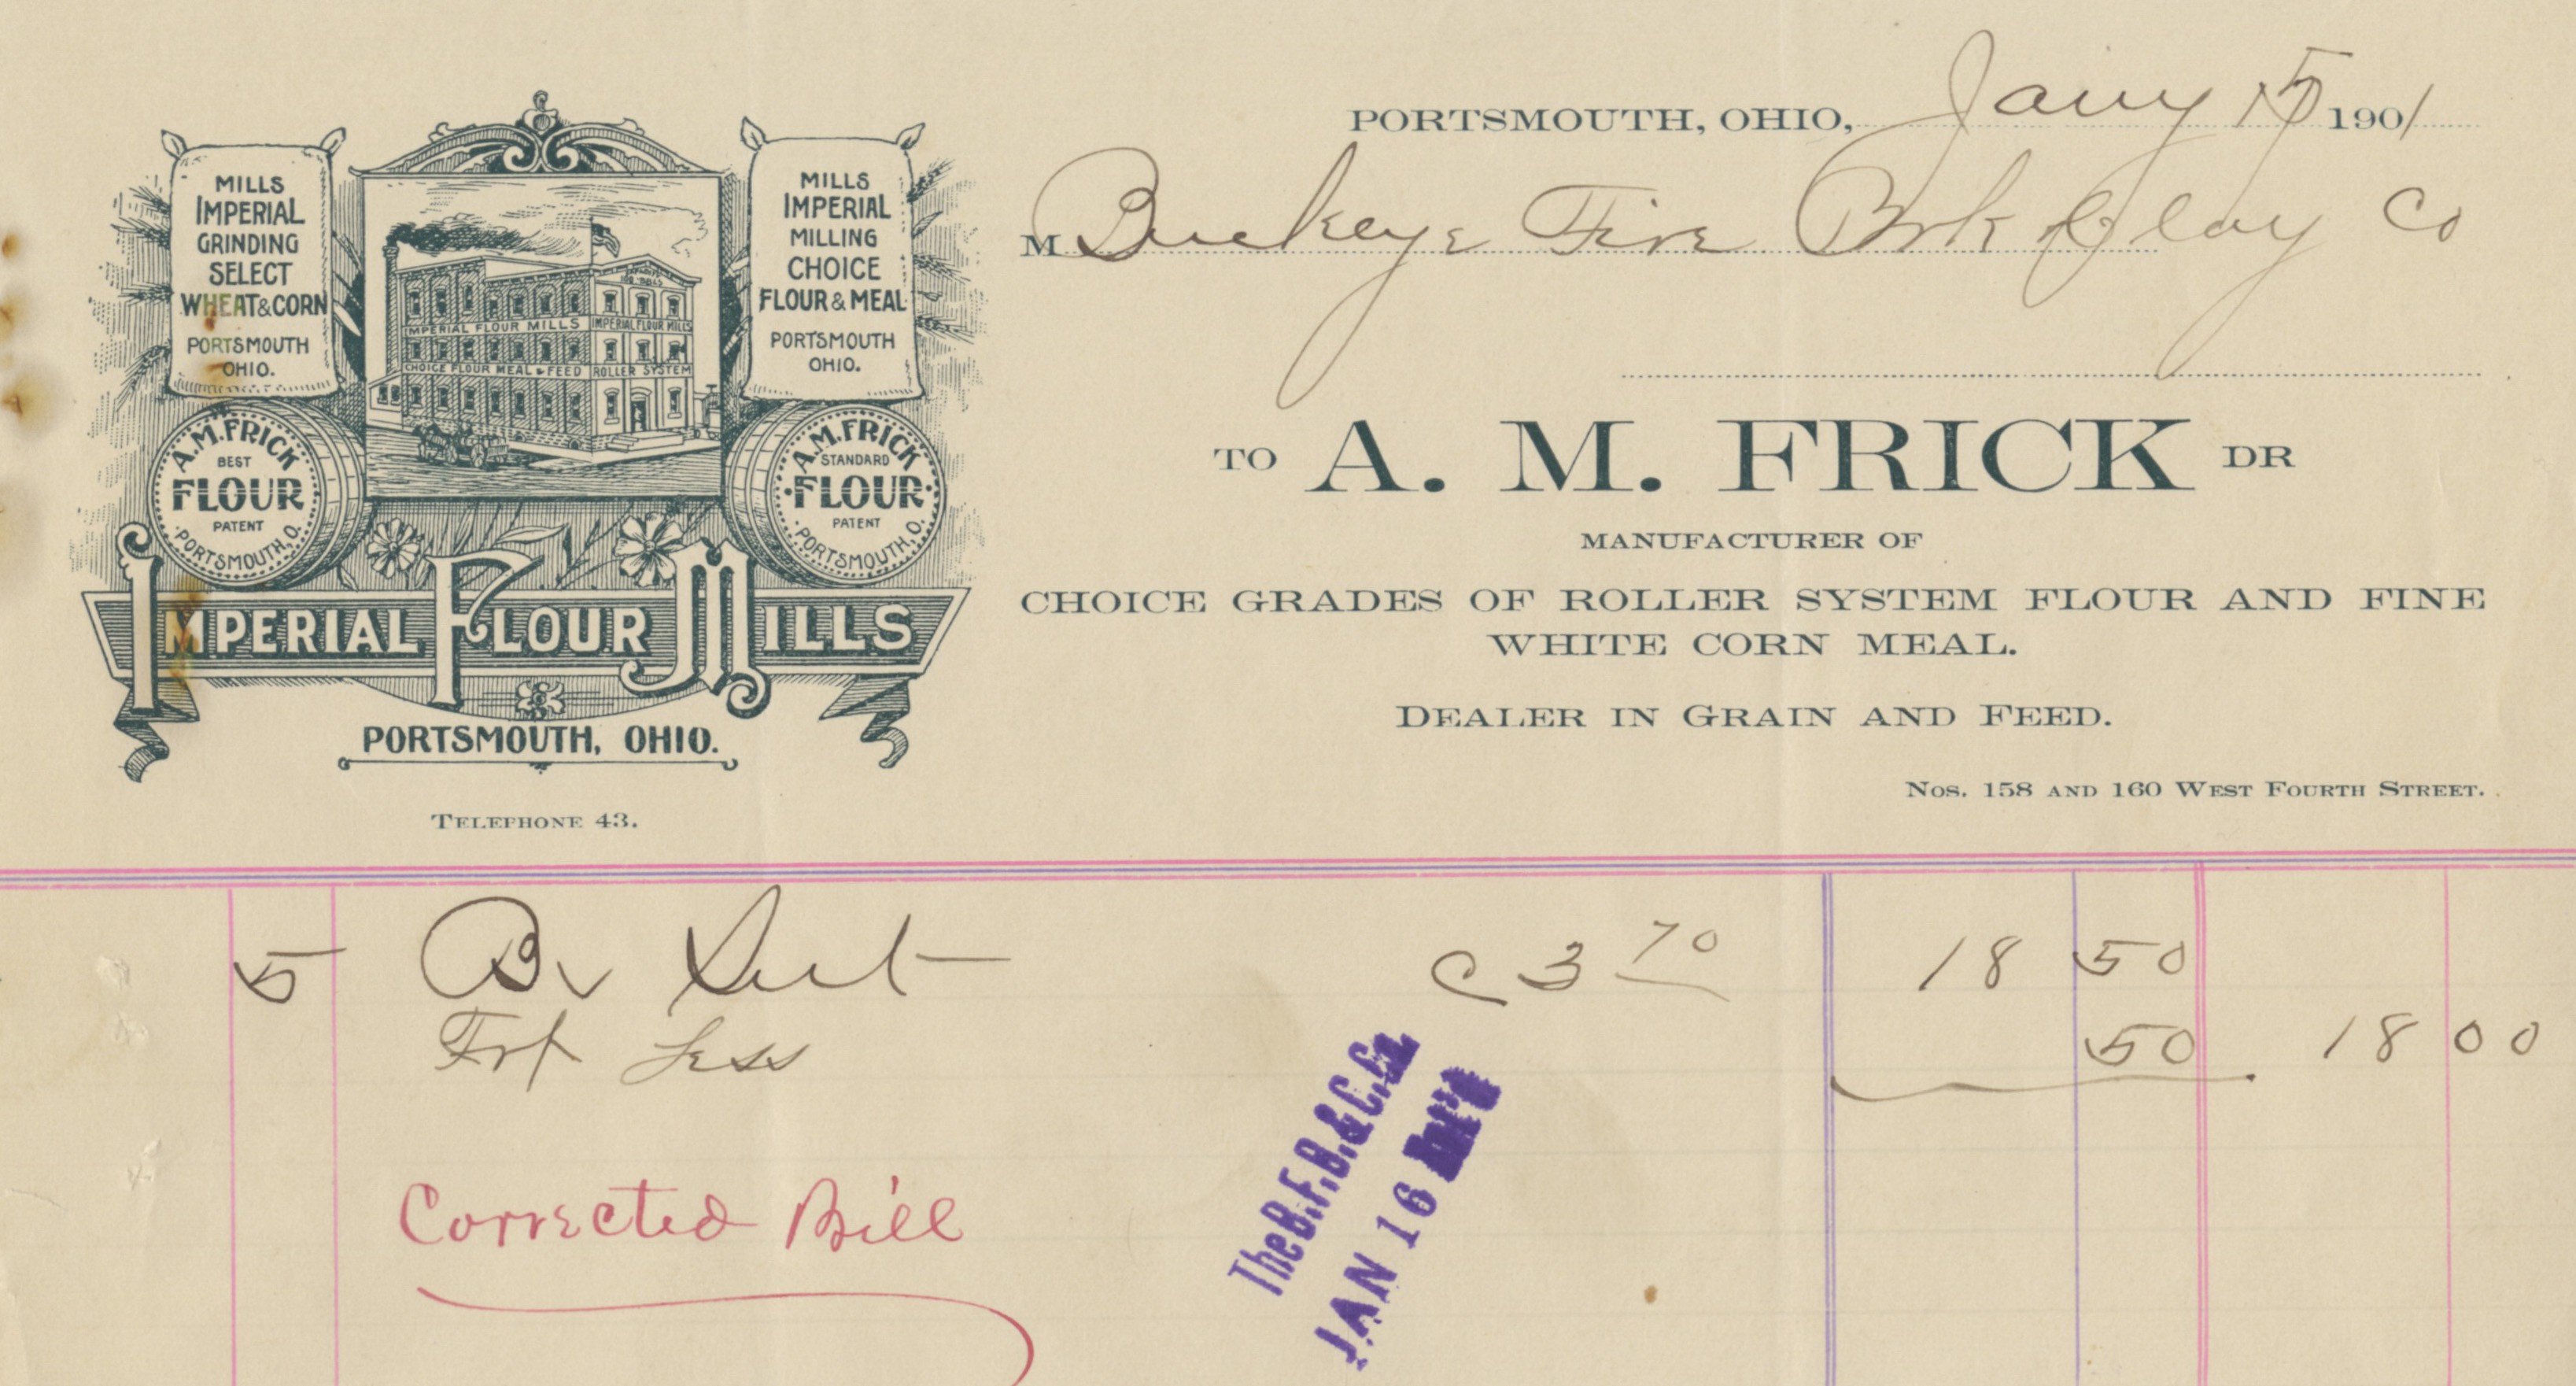 MILLS
IMPERIAL
GRINDING
SELECT
WHEAT & CORN
PORTSMOUTH
OHIO.
MILLS
IMPERIAL
MILLING
CHOICE
FLOUR & MEAL
PORTSMOUTH
OHIO.
IMPERIAL FLOUR MILLS
IMPERIAL FLOUR MILLS
CHOICE FLOUR MEAL & FEED
ROLLER SYSTEM
A.M. FRICK
BEST
FLOUR
PATENT
PORTSMOUTH, O.
A.M. FRICK
STANDARD
FLOUR
PATENT
PORTSMOUTH, O.
IMPERIAL FLOUR MILLS
PORTSMOUTH, OHIO.
TELEPHONE 43.
PORTSMOUTH, OHIO, Jany 15 1901
M Buckeye Fire Brk & Clay Co
TO A. M. FRICK DR
MANUFACTURER OF
CHOICE GRADES OF ROLLER SYSTEM FLOUR AND FINE
WHITE CORN MEAL.
DEALER IN GRAIN AND FEED.
NOS. 158 AND 160 WEST FOURTH STREET.
5 3 70 18 50
Frt Less 50 18 00
Corrected Bill
The B.F.B.&C.Co.
JAN 16